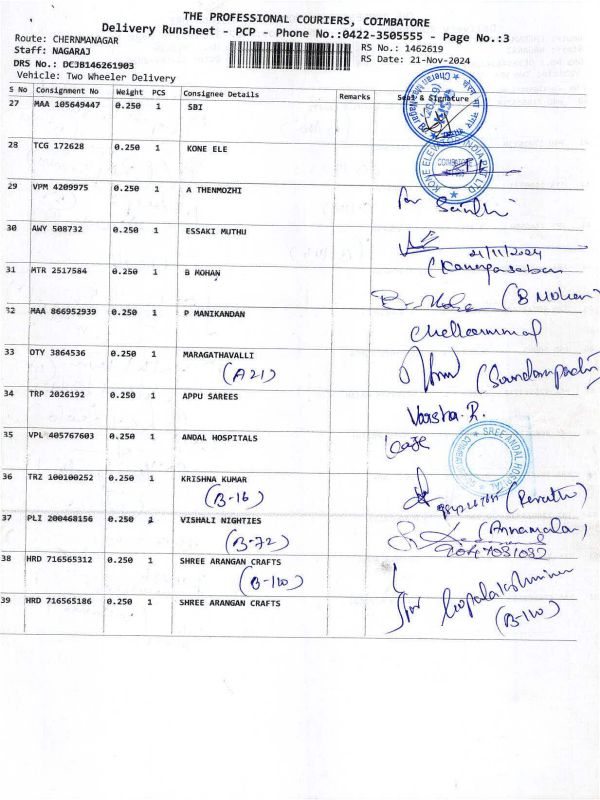 THE PROFESSIONAL COURIERS, COIMBATORE
Delivery Runsheet - PCP - Phone No.:0422-3505555 - Page No.:3
Route: CHERNMANAGAR
Staff: NAGARAJ
RS No.: 1462619
DRS No.: DCJB146261903
RS Date: 21-Nov-2024
Vehicle: Two Wheeler Delivery
S No Consignment No Weight PCS Consignee Details Remarks Seal & Signature
27 MAA 105649447 0.250 1 SBI
28 TCG 172628 0.250 1 KONE ELE
KONE ELEVATOR INDIA PVT LTD
COIMBATORE
29 VPM 4209975 0.250 1 A THENMOZHI
for
30 AWY 508732 0.250 1 ESSAKI MUTHU
21/11/2024
31 MTR 2517584 0.250 1 B MOHAN
(B Mohan)
32 MAA 866952939 0.250 1 P MANIKANDAN
33 OTY 3864536 0.250 1 MARAGATHAVALLI
(A21)
34 TRP 2026192 0.250 1 APPU SAREES
Varsha.R.
35 VPL 405767603 0.250 1 ANDAL HOSPITALS
SREE ANDAL HOSPITAL
36 TRZ 100100252 0.250 1 KRISHNA KUMAR
(B-16)
37 PLI 200468156 0.250 2 VISHALI NIGHTIES
(B-72)
(Annamalai)
38 HRD 716565312 0.250 1 SHREE ARANGAN CRAFTS
(B-110)
39 HRD 716565186 0.250 1 SHREE ARANGAN CRAFTS
for
(B-110)